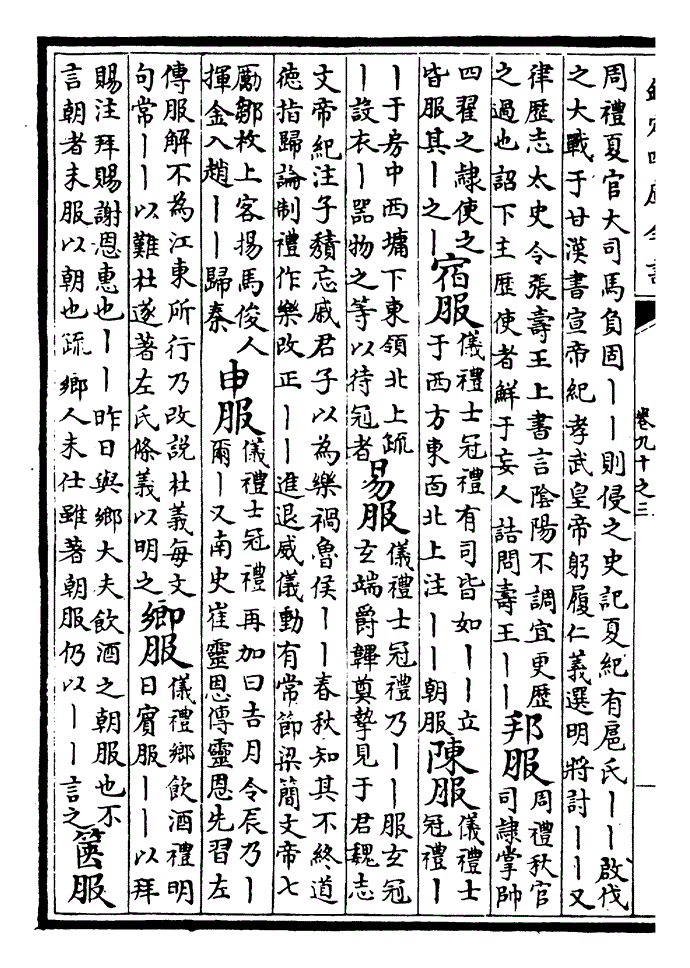 欽定四庫全書
卷九十之三
周禮夏官大司馬負固丨丨則侵之史記夏紀有扈氏丨丨啟伐
之大戰于甘漢書宣帝紀孝武皇帝躬履仁義選明將討丨丨又
律歷志太史令張壽王上書言陰陽不調宜更歷
之過也詔下主歷使者鮮于妄人詰問壽王丨丨
邦服
周禮秋官
司隸掌帥
四翟之隸使之
皆服其丨之丨
宿服
儀禮士冠禮有司皆如丨丨立
于西方東面北上注丨丨朝服
陳服
儀禮士
冠禮丨
丨于房中西墉下東領北上疏
丨設衣丨器物之等以待冠者
易服
儀禮士冠禮乃丨丨服玄冠
玄端爵韠奠摯見于君魏志
文帝紀注子頹忘戚君子以為樂禍魯侯丨丨春秋知其不終道
徳指歸論制禮作樂改正丨丨進退威儀動有常節梁簡文帝七
勵鄒枚上客揚馬俊人
揮金入趙丨丨歸秦
申服
儀禮士冠禮再加曰吉月令辰乃丨
爾丨又南史崔靈恩傳靈恩先習左
傳服解不為江東所行乃改說杜義每文
句常丨丨以難杜遂著左氏條義以明之
鄉服
儀禮鄉飲酒禮明
日賓服丨丨以拜
賜注拜賜謝恩惠也丨丨昨日與鄉大夫飲酒之朝服也不
言朝者未服以朝也疏鄉人未仕雖著朝服仍以丨丨言之
篋服